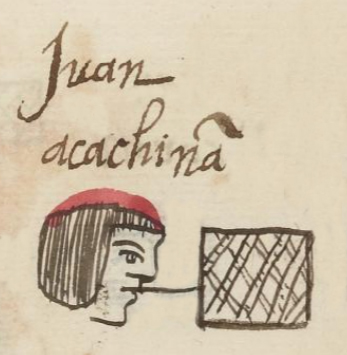 Juan
acachinã